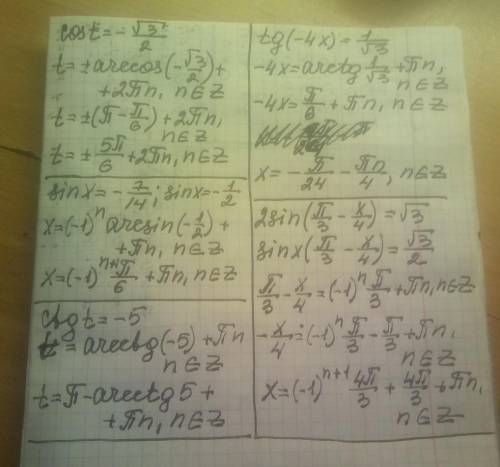 cost = -√3/2
t = ± arccos(-√3/2) +
+ 2πn, n∈Z
t = ±(π - π/6) + 2πn,
n∈Z
t = ± 5π/6 + 2πn, n∈Z
sinx = -7/14; sinx = -1/2
x = (-1)ⁿ arcsin(-1/2) +
+ πn, n∈Z
x = (-1)ⁿ⁺¹ π/6 + πn, n∈Z
ctg t = -5
t = arcctg(-5) + πn
n∈Z
t = π - arcctg 5 +
+ πn, n∈Z
tg(-4x) = 1/√3
-4x = arctg 1/√3 + πn,
n∈Z
-4x = π/6 + πn, n∈Z
x = -π/24 - πn/4, n∈Z
2sin(π/3 - x/4) = √3
sinx(π/3 - x/4) = √3/2
π/3 - x/4 = (-1)ⁿ π/3 + πn, n∈Z
-x/4 = (-1)ⁿ π/3 - π/3 + πn,
n∈Z
x = (-1)ⁿ⁺¹ 4π/3 + 4π/3 + πn,
n∈Z